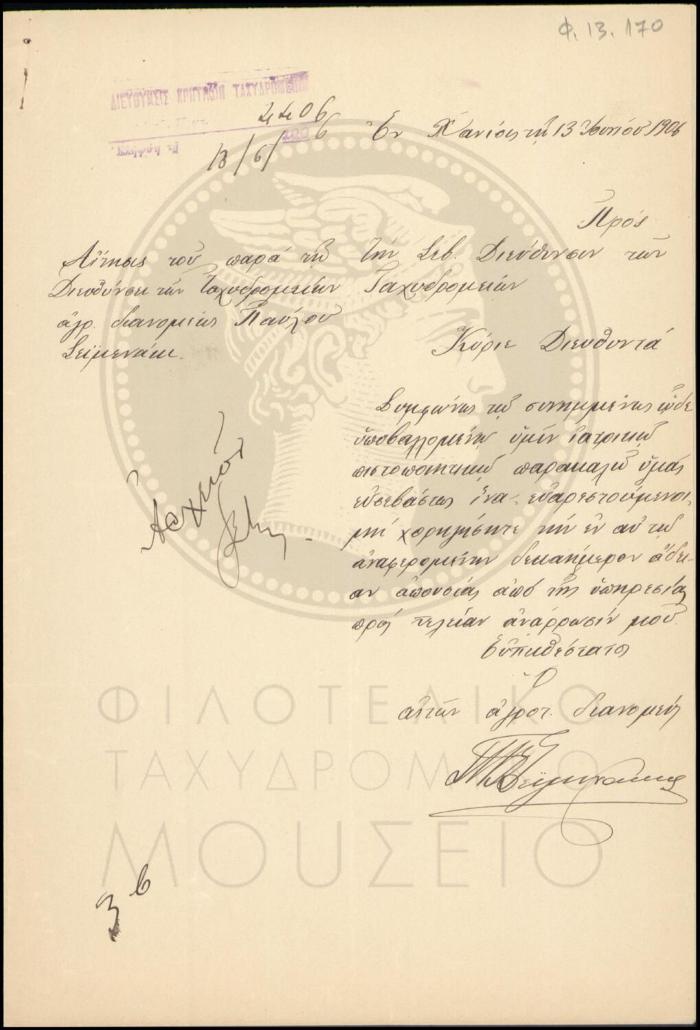 Φ. 13. 170
ΔΙΕΥΘΥΝΣΙΣ ΚΡΗΤΙΚΩΝ ΤΑΧΥΔΡΟΜΕΙΩΝ
2206
13/6/906
Ἐν Χανίοις τῇ 13 Ἰουνίου 1906
Πρός
τὴν Σεβ. Διεύθυνσιν τῶν
Ταχυδρομείων
Αἴτησις τοῦ παρὰ τῇ
Διευθύνσει τῶν Ταχυδρομείων
ἀγρ. διανομέως Παύλου
Σεϊμενάκη.
Κύριε Διευθυντά
Συμφώνως τῷ συνημμένως ὧδε
ὑποβαλλομένῳ ὑμῖν ἰατρικῷ
πιστοποιητικῷ παρακαλῶ ὑμᾶς
εὐσεβάστως ἵνα εὐαρεστούμενοι
μοὶ χορηγήσητε τὴν ἐν αὐτῷ
ἀναφερομένην δεκαήμερον ἄδει-
αν ἀπουσίας ἀπὸ τῆς ὑπηρεσίας
πρὸς τελείαν ἀνάρρωσίν μου.
Εὐπειθέστατος
Ὁ
αἰτῶν ἀγροτ. διανομεύς
Σεϊμενάκης
Ἀρχεῖον
ΦΙΛΟΤΕΛΙΚΟ
ΤΑΧΥΔΡΟΜΙΚΟ
ΜΟΥΣΕΙΟ